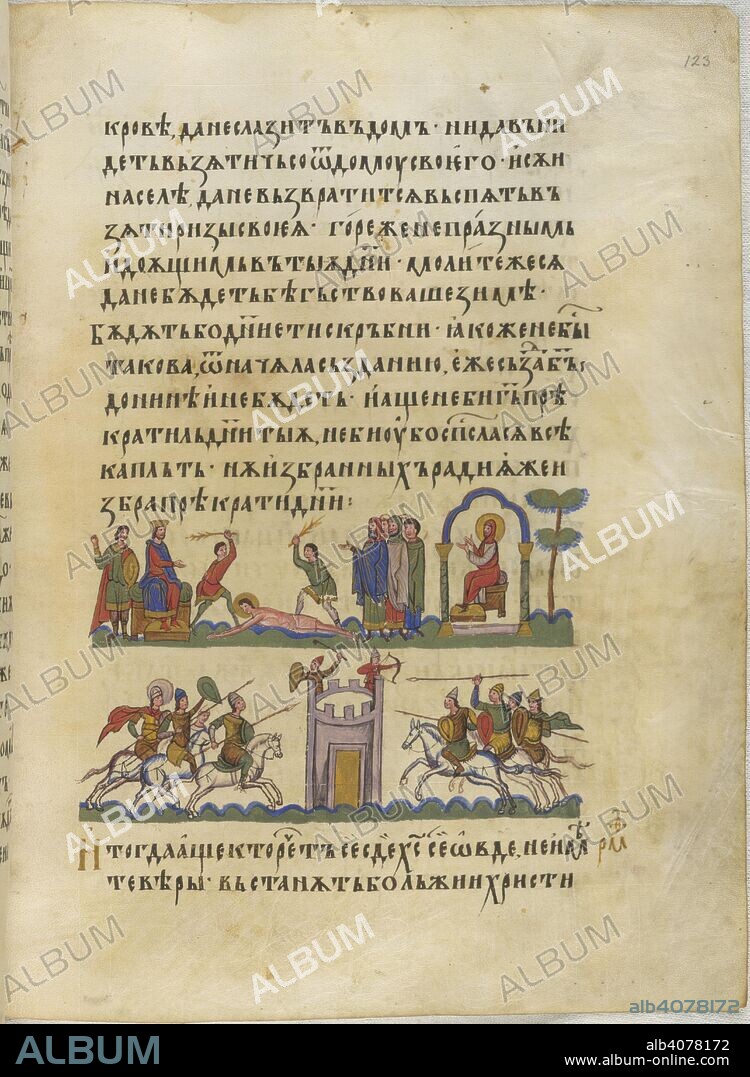 123
кровѣ, да не слазитъ въ домъ · ни да вьни
деть вьзѧти чьсо ѿ домоу своѥго · и сжи
на селѣ, да не вьзвратитсѧ вьспѧть вь
зѧти ризы своѥѧ · горе же не пра́знымь
и доѧщимь въ тыѧ дн҃и · молите же сѧ
да не бѫдеть бѣгьство ваше зимѣ ·
Бѫдѫть бо дн҃иѥ ти скръбни · ꙗкоже не бы
такова, ѿ начѧла създанию, ѥже създа б҃ъ
до нинѣ и не бѫдеть · и аще не би г҃ь прѣ
кратиль дн҃и тыѧ, не би оубо сп҃сласѧ всѣ
ка пльть · нѫ избранныхъ ради ѧже и
збра прѣкрати дн҃и :
И тогда аще кто речеть се сде х҃с се ѡвде, не имѣ
те вѣры · вьстанѫть бо льжии христи
ALBUM
alb4078172
ALBUM
alb4078172
www.album-online.com